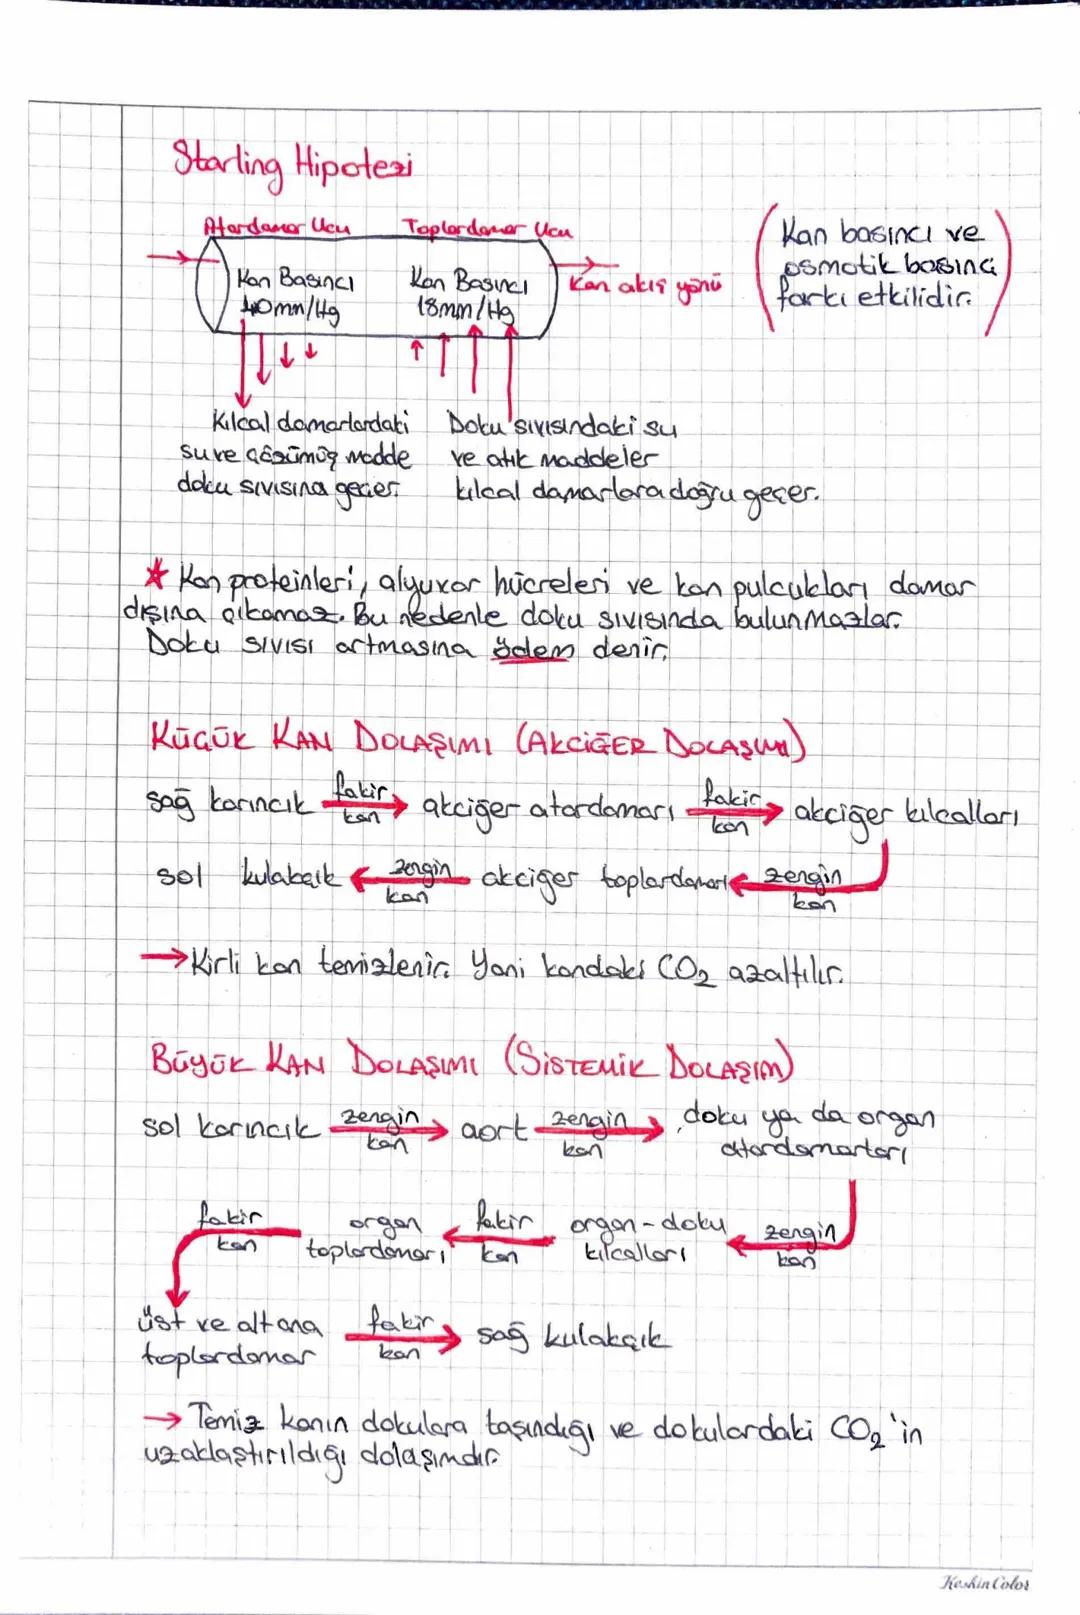 Starling Hipotezi
Atardamar Ucu Toplardamar Ucu
Kan Basıncı 40mm/Hg
Kan Basıncı 18mm/Hg
Kan akış yönü
(Kan basıncı ve
osmotik basınç
farkı etkilidir.)
Kılcal damarlardaki
su ve çözümüş madde
doku sıvısına geçer.
Doku sıvısındaki su
ve atık maddeler
kılcal damarlara doğru geçer.
* Kan proteinleri, alyuvar hücreleri ve kan pulcukları damar
dışına çıkamaz. Bu nedenle doku sıvısında bulunmazlar.
Doku sıvısı artmasına ödem denir.
KÜÇÜK KAN DOLAŞIMI (AKCİĞER DOLAŞIMI)
sağ karıncık fakir kan → akciğer atardamarı fakir kan → akciğer kılcalları
sol kulakçık ← zengin kan akciğer toplardamarı ← zengin kan
→ Kirli kan temizlenir. Yani kandaki CO₂ azaltılır.
BÜYÜK KAN DOLAŞIMI (SİSTEMİK DOLAŞIM)
sol karıncık zengin kan → aort zengin kan → doku ya da organ
atardamarları
fakir kan organ toplardamarı ← fakir kan organ-doku kılcalları ← zengin kan
üst ve alt ana
toplardamar fakir kan → sağ kulakçık
→ Temiz kanın dokulara taşındığı ve dokulardaki CO₂'in
uzaklaştırıldığı dolaşımdır.
Keskin Color